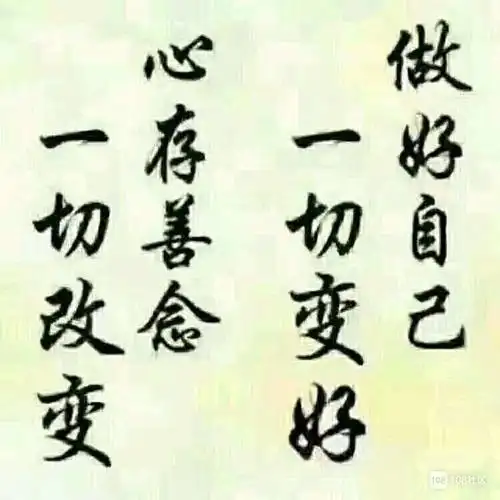 做好自己
一切变好
心存善念
一切改变